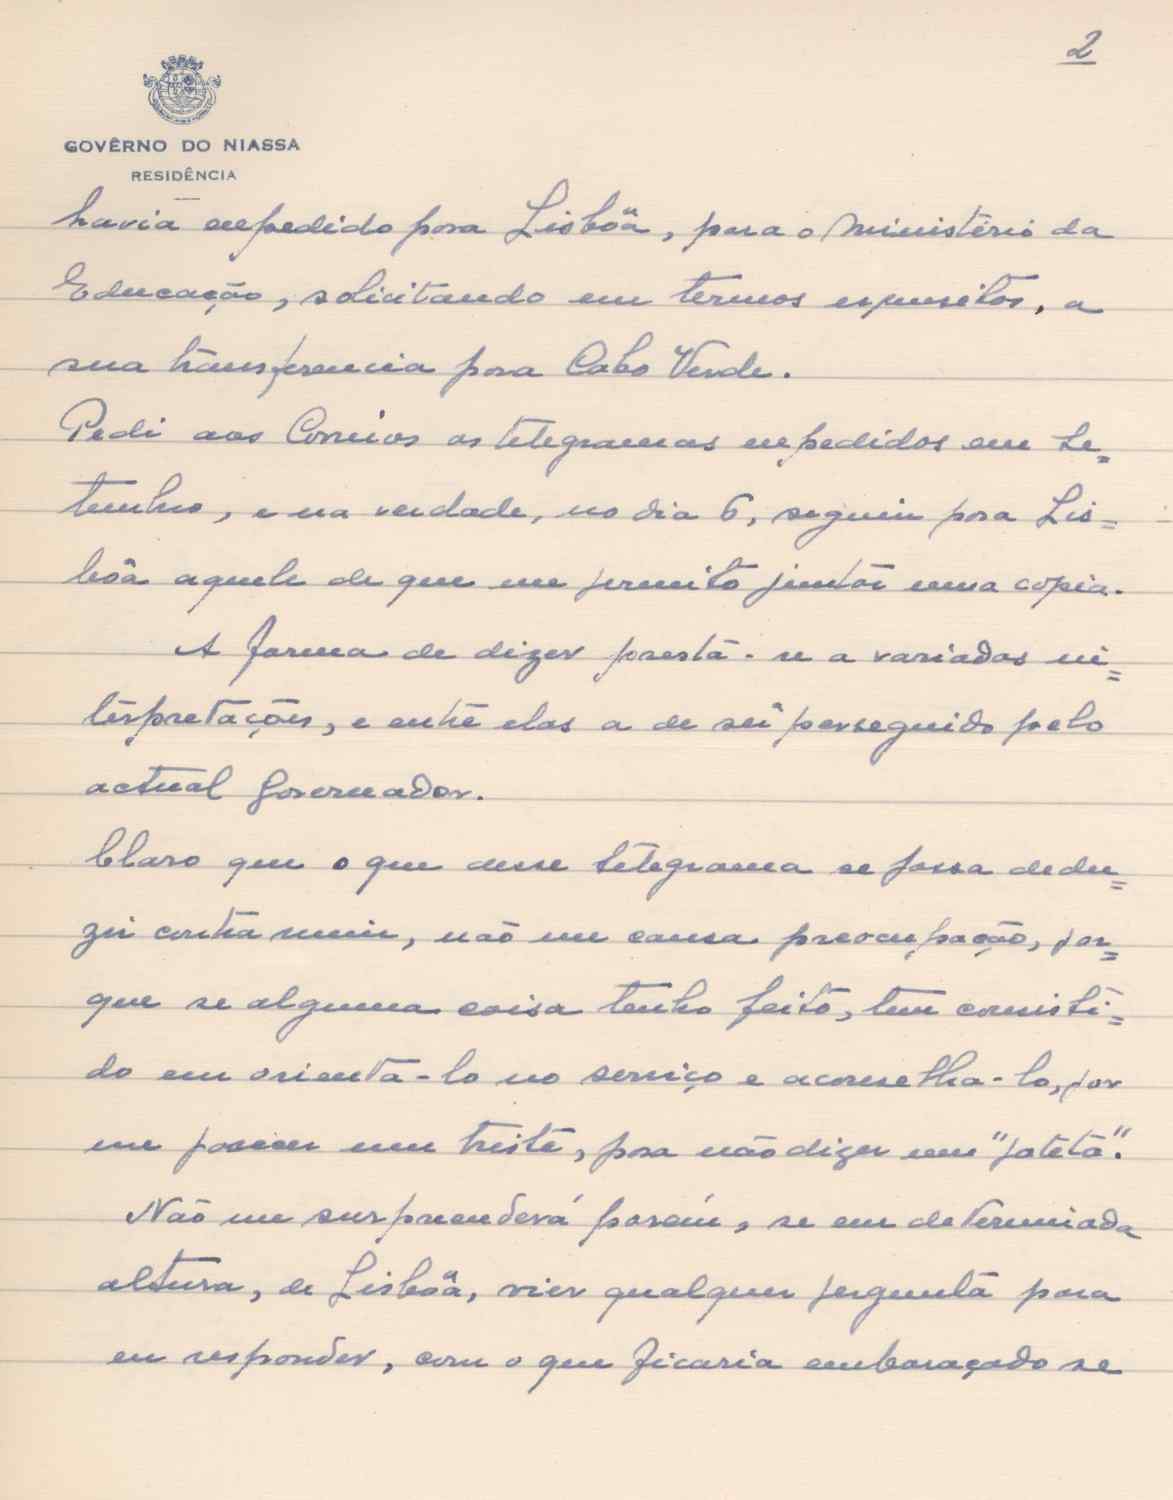 2
GOVÊRNO DO NIASSA
RESIDÊNCIA
havia expedido para Lisbôa, para o Ministério da
Educação, solicitando em termos esquesitos, a
sua transferencia para Cabo Verde.
Pedi aos Correios os telegramas expedidos em Se=
tembro, e na verdade, no dia 6, seguiu para Lis=
bôa aquele de que me permito juntar uma copia.
A forma de dizer presta-se a variadas in=
terpretações, e entre elas a de ser perseguido pelo
actual Governador.
Claro que o que desse telegrama se possa dedu=
zir contra mim, não me causa preocupação, por=
que se alguma coisa tenho feito, tem consisti=
do em orienta-lo no serviço e aconselha-lo, por
me parecer um triste, pra não dizer um "pateta".
Não me surpreenderá porém, se em determinada
altura, de Lisbôa, vier qualquer pergunta para
eu responder, com o que ficaria embaraçado se